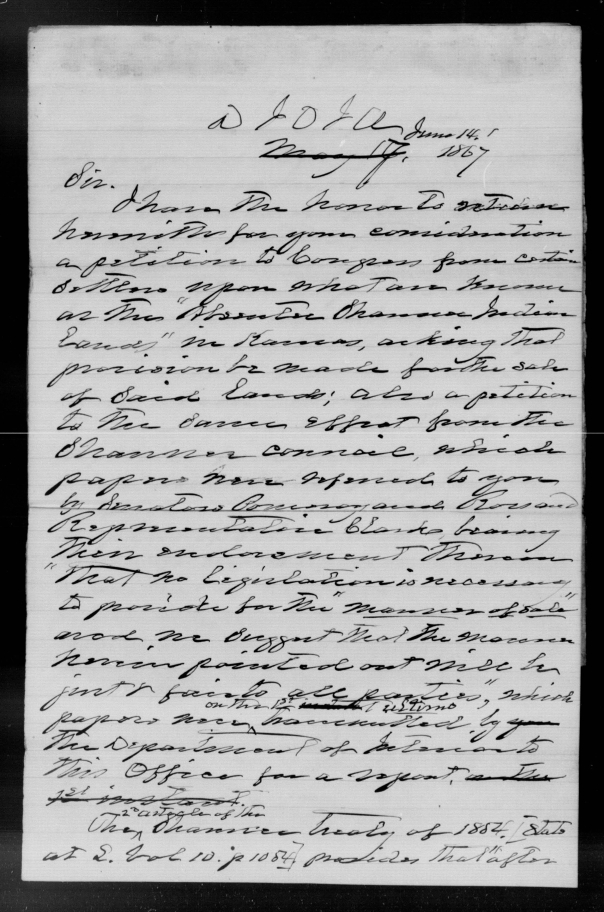 D I O I A
June 14,
May 17, 1867
Sir.
I have the honor to return
herewith for your consideration
a petition to Congress from certain
Settlers upon what are known
as the "Absentee Shawnee Indian
Lands" in Kansas, asking that
provision be made for the sale
of Said Lands; also a petition
to the same effect from the
Shawnee council, which
papers were referred to you
by Senators Pomeroy and Ross and
Representative Clarke, bearing
their endorsement thereon
"that no legislation is necessary
to provide for the "manner of sale"
and we suggest that the manner
herein pointed out will be
just & fair to all parties", which
on the 1st ultimo
papers were transmitted by you
the Department of Interior to
this Office for a report, on the
1st instant.
2d article of the
The Shawnee treaty of 1854. [Stats
at L. Vol 10. p 1054] provides that "after